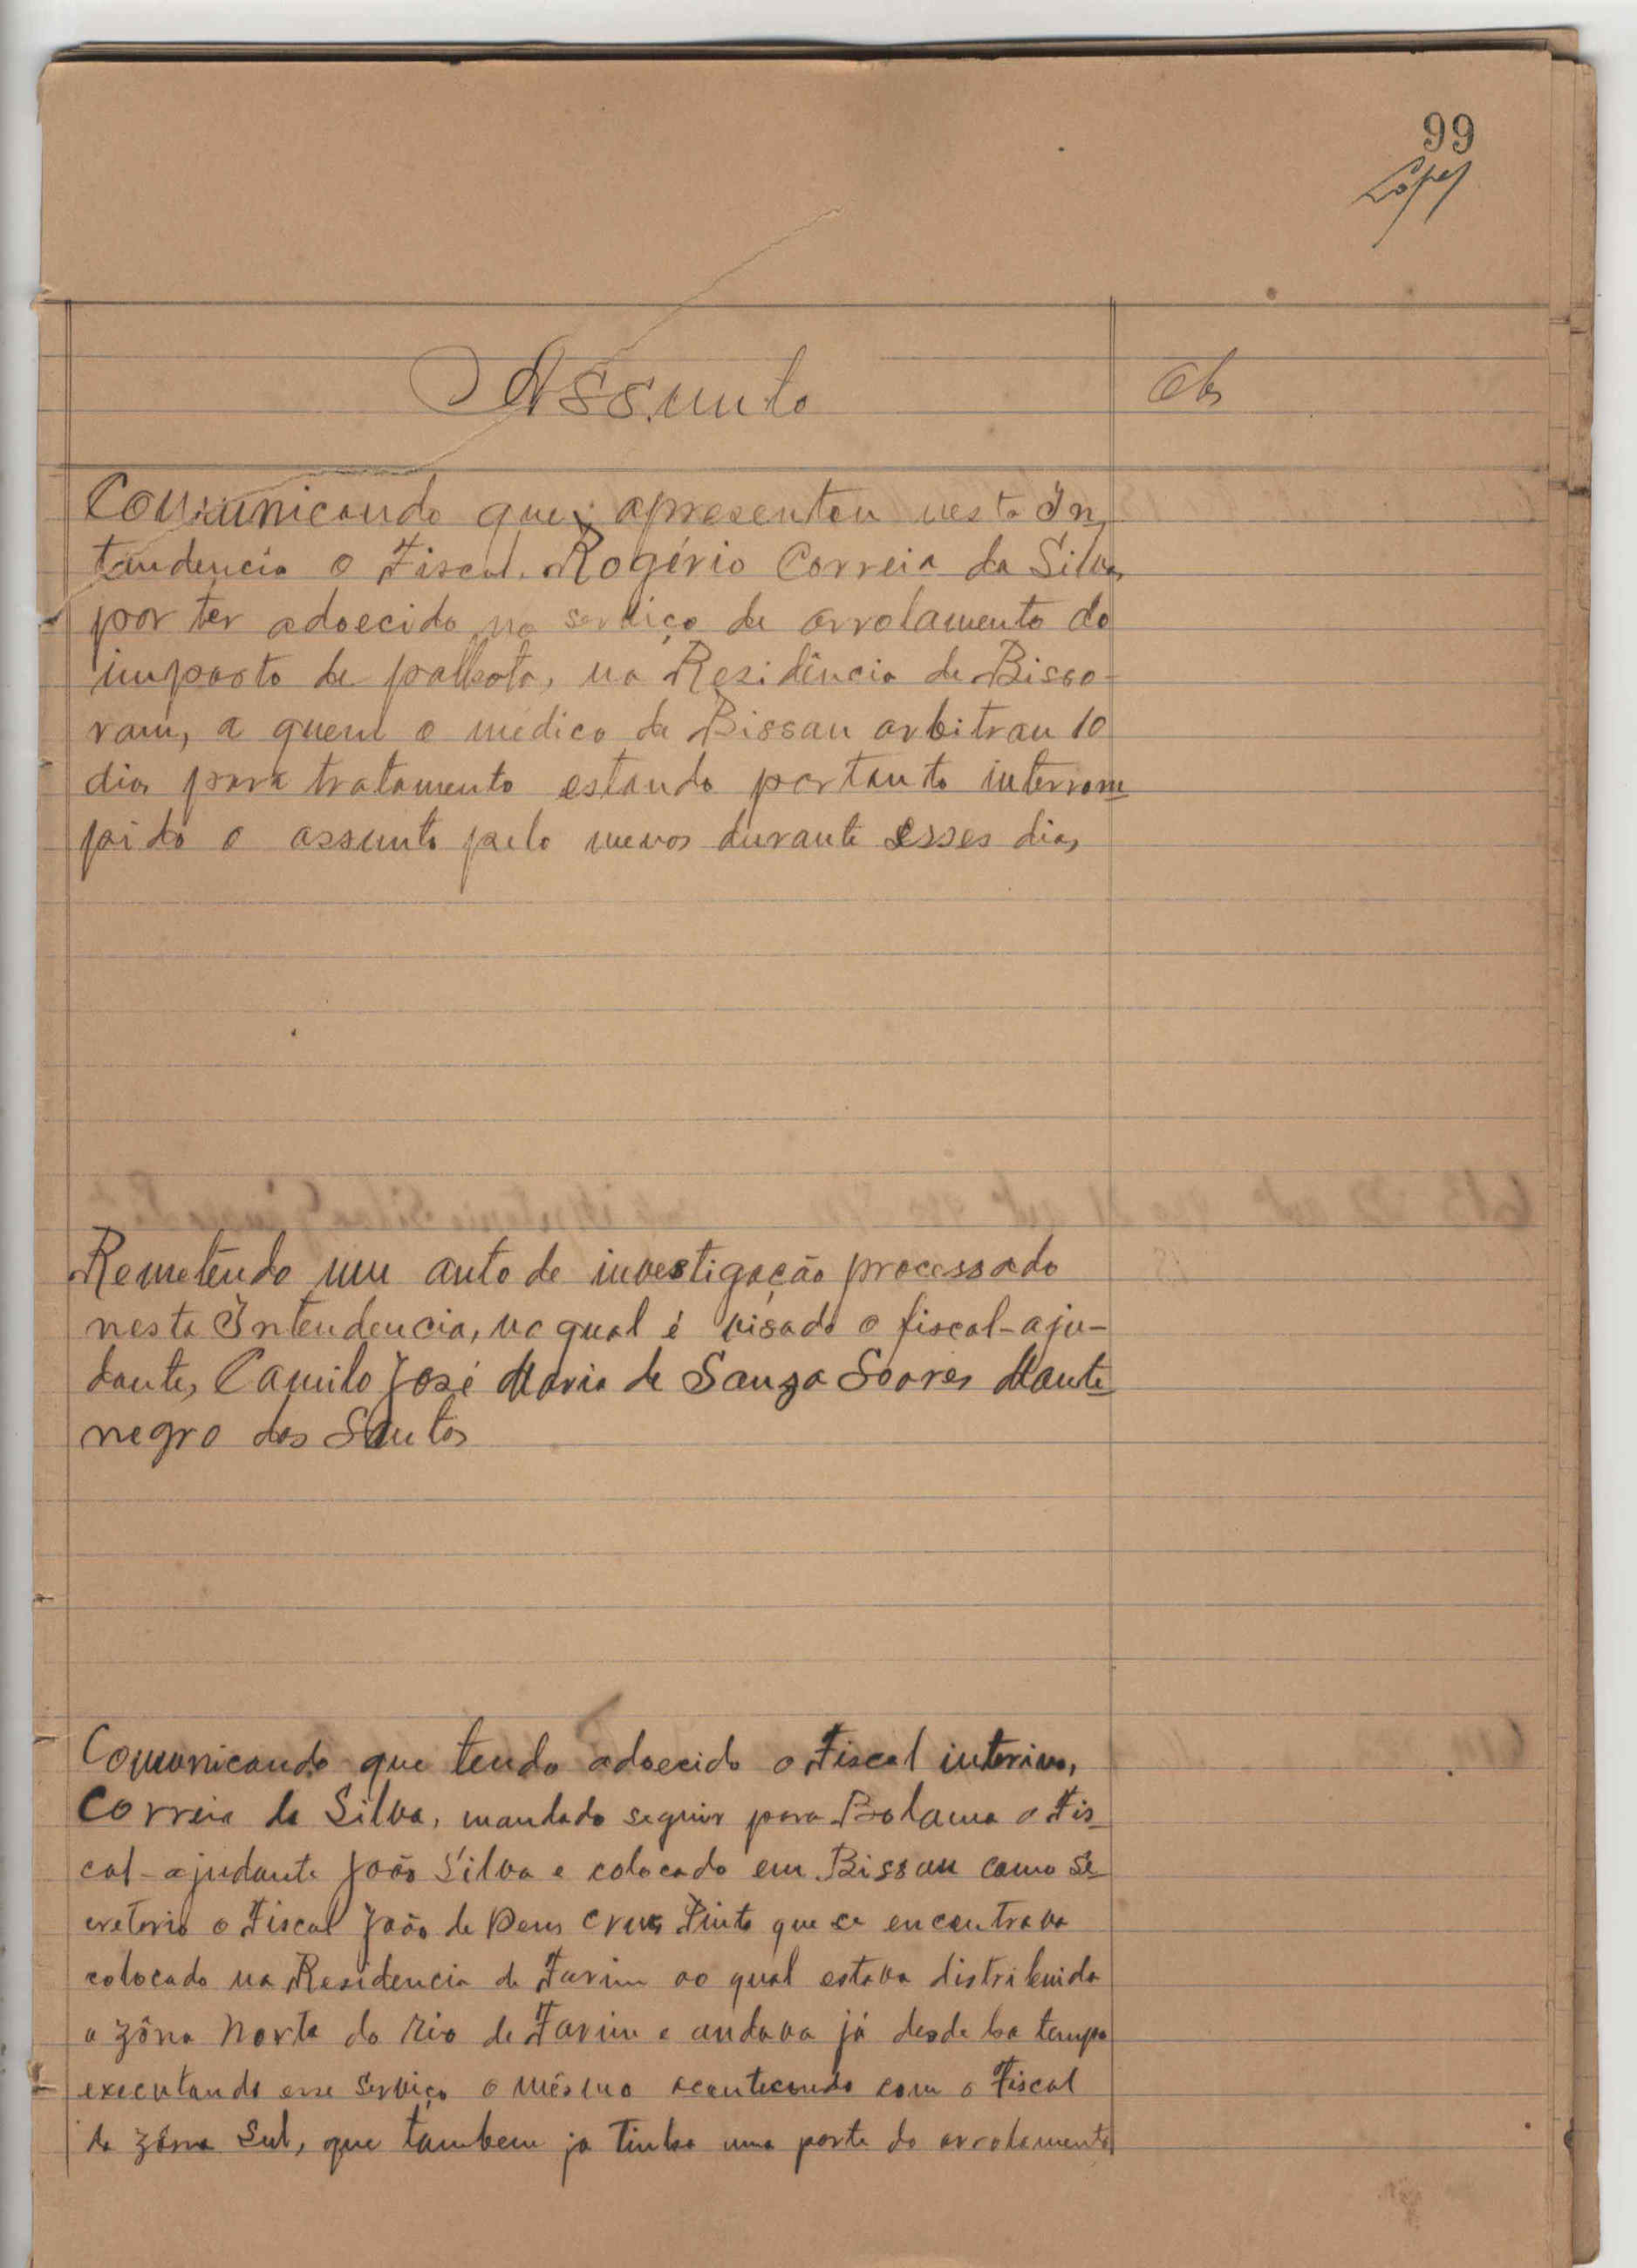 99
Lopes
Assunto
Obs
Comunicando que apresentou nesta In
tendencia o Fiscal, Rogério Correia da Silva,
por ter adoecido no serviço de arrolamento do
imposto de palhota, na Residência de Bisso-
ram, a quem o médico de Bissau arbitrou 10
dias para tratamento estando portanto interrom
pido o assunto pelo menos durante esses dias
Remetendo um auto de investigação processado
nesta Intendencia, no qual é visado o fiscal-aju-
dante, Camilo José Maria de Souza Soares Monte
negro dos Santos
Comunicando que tendo adoecido o Fiscal interino,
Correia da Silva, mandado seguir para Bolama o Fis
cal-ajudante João Silva e colocado em Bissau como se
cretario o Fiscal João de Deus Cruz Pinto que se encontrava
colocado na Residencia de Farim ao qual estava distribuida
a zôna Norte do rio de Farim e andava já desde ha tempo
executando esse serviço o mésmo acontecendo com o Fiscal
da zôna Sul, que tambem ja tinha uma parte do arrolamento